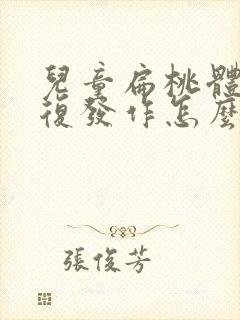 兒童扁桃體
復發作怎麼
張俊芳